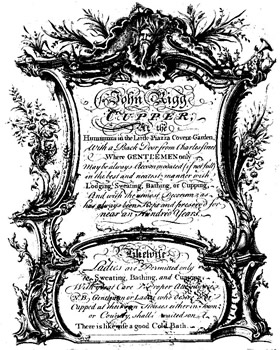 John Rigg
CUPPER,
At the
Hummums in the Little Piazza Covent Garden,
With a Back Door from Charles street
Where GENTLEMEN only
May be always Accommodated (if not full)
in the best and neatest manner with
Lodging, Sweating, Bathing, or Cupping,
And with the utmost Decorum as
has always been Kept and preserv'd for
near an Hundred Years.
Likewise
Ladies are Permitted only
Sweating, Bathing, and Cupping
With Great Care & Proper Attendance
N.B. Gentlemen or Ladies who desire to be
Cupped at their own Houses either in Town
or Country, shall waited on
There is likewise a good Cold Bath.